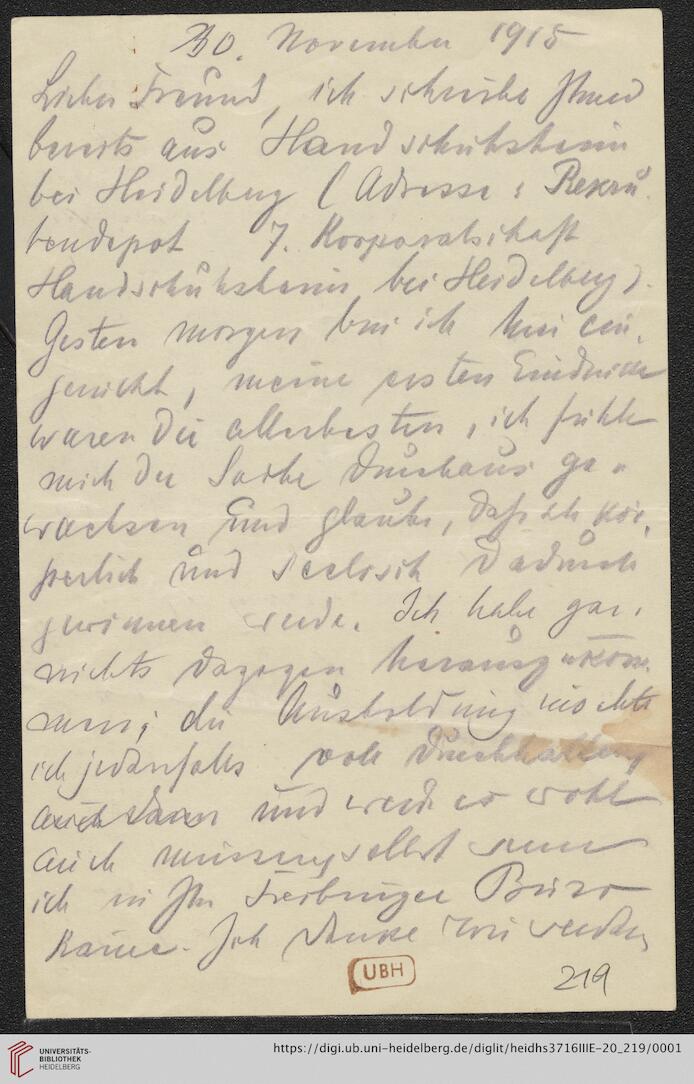 30. November 1915
Lieber Freund, ich schreibe Ihnen
bereits aus Handschuhsheim
bei Heidelberg (Adresse: Rekru
tendepot 7. Korporalschaft
Handschuhsheim bei Heidelberg).
Gestern morgen bin ich hier ein
gerückt, meine ersten Eindrücke
waren die allerbesten, ich fühle
mich der Sache durchaus ge-
wachsen und glaube, daß ich kör
perlich und seelisch dadurch
gewinnen werde. Ich habe gar
nichts dagegen herauszukom
men; die Ausbildung möchte
ich jedenfalls voll durchhalten
und werde es wohl
auch müssen, selbst wenn
ich in Ihr Freiburger Büro
käme. Ich denke wir werden
UBH
219
UNIVERSITÄTS-
BIBLIOTHEK
HEIDELBERG
https://digi.ub.uni-heidelberg.de/diglit/heidhs3716IIIE-20_219/0001